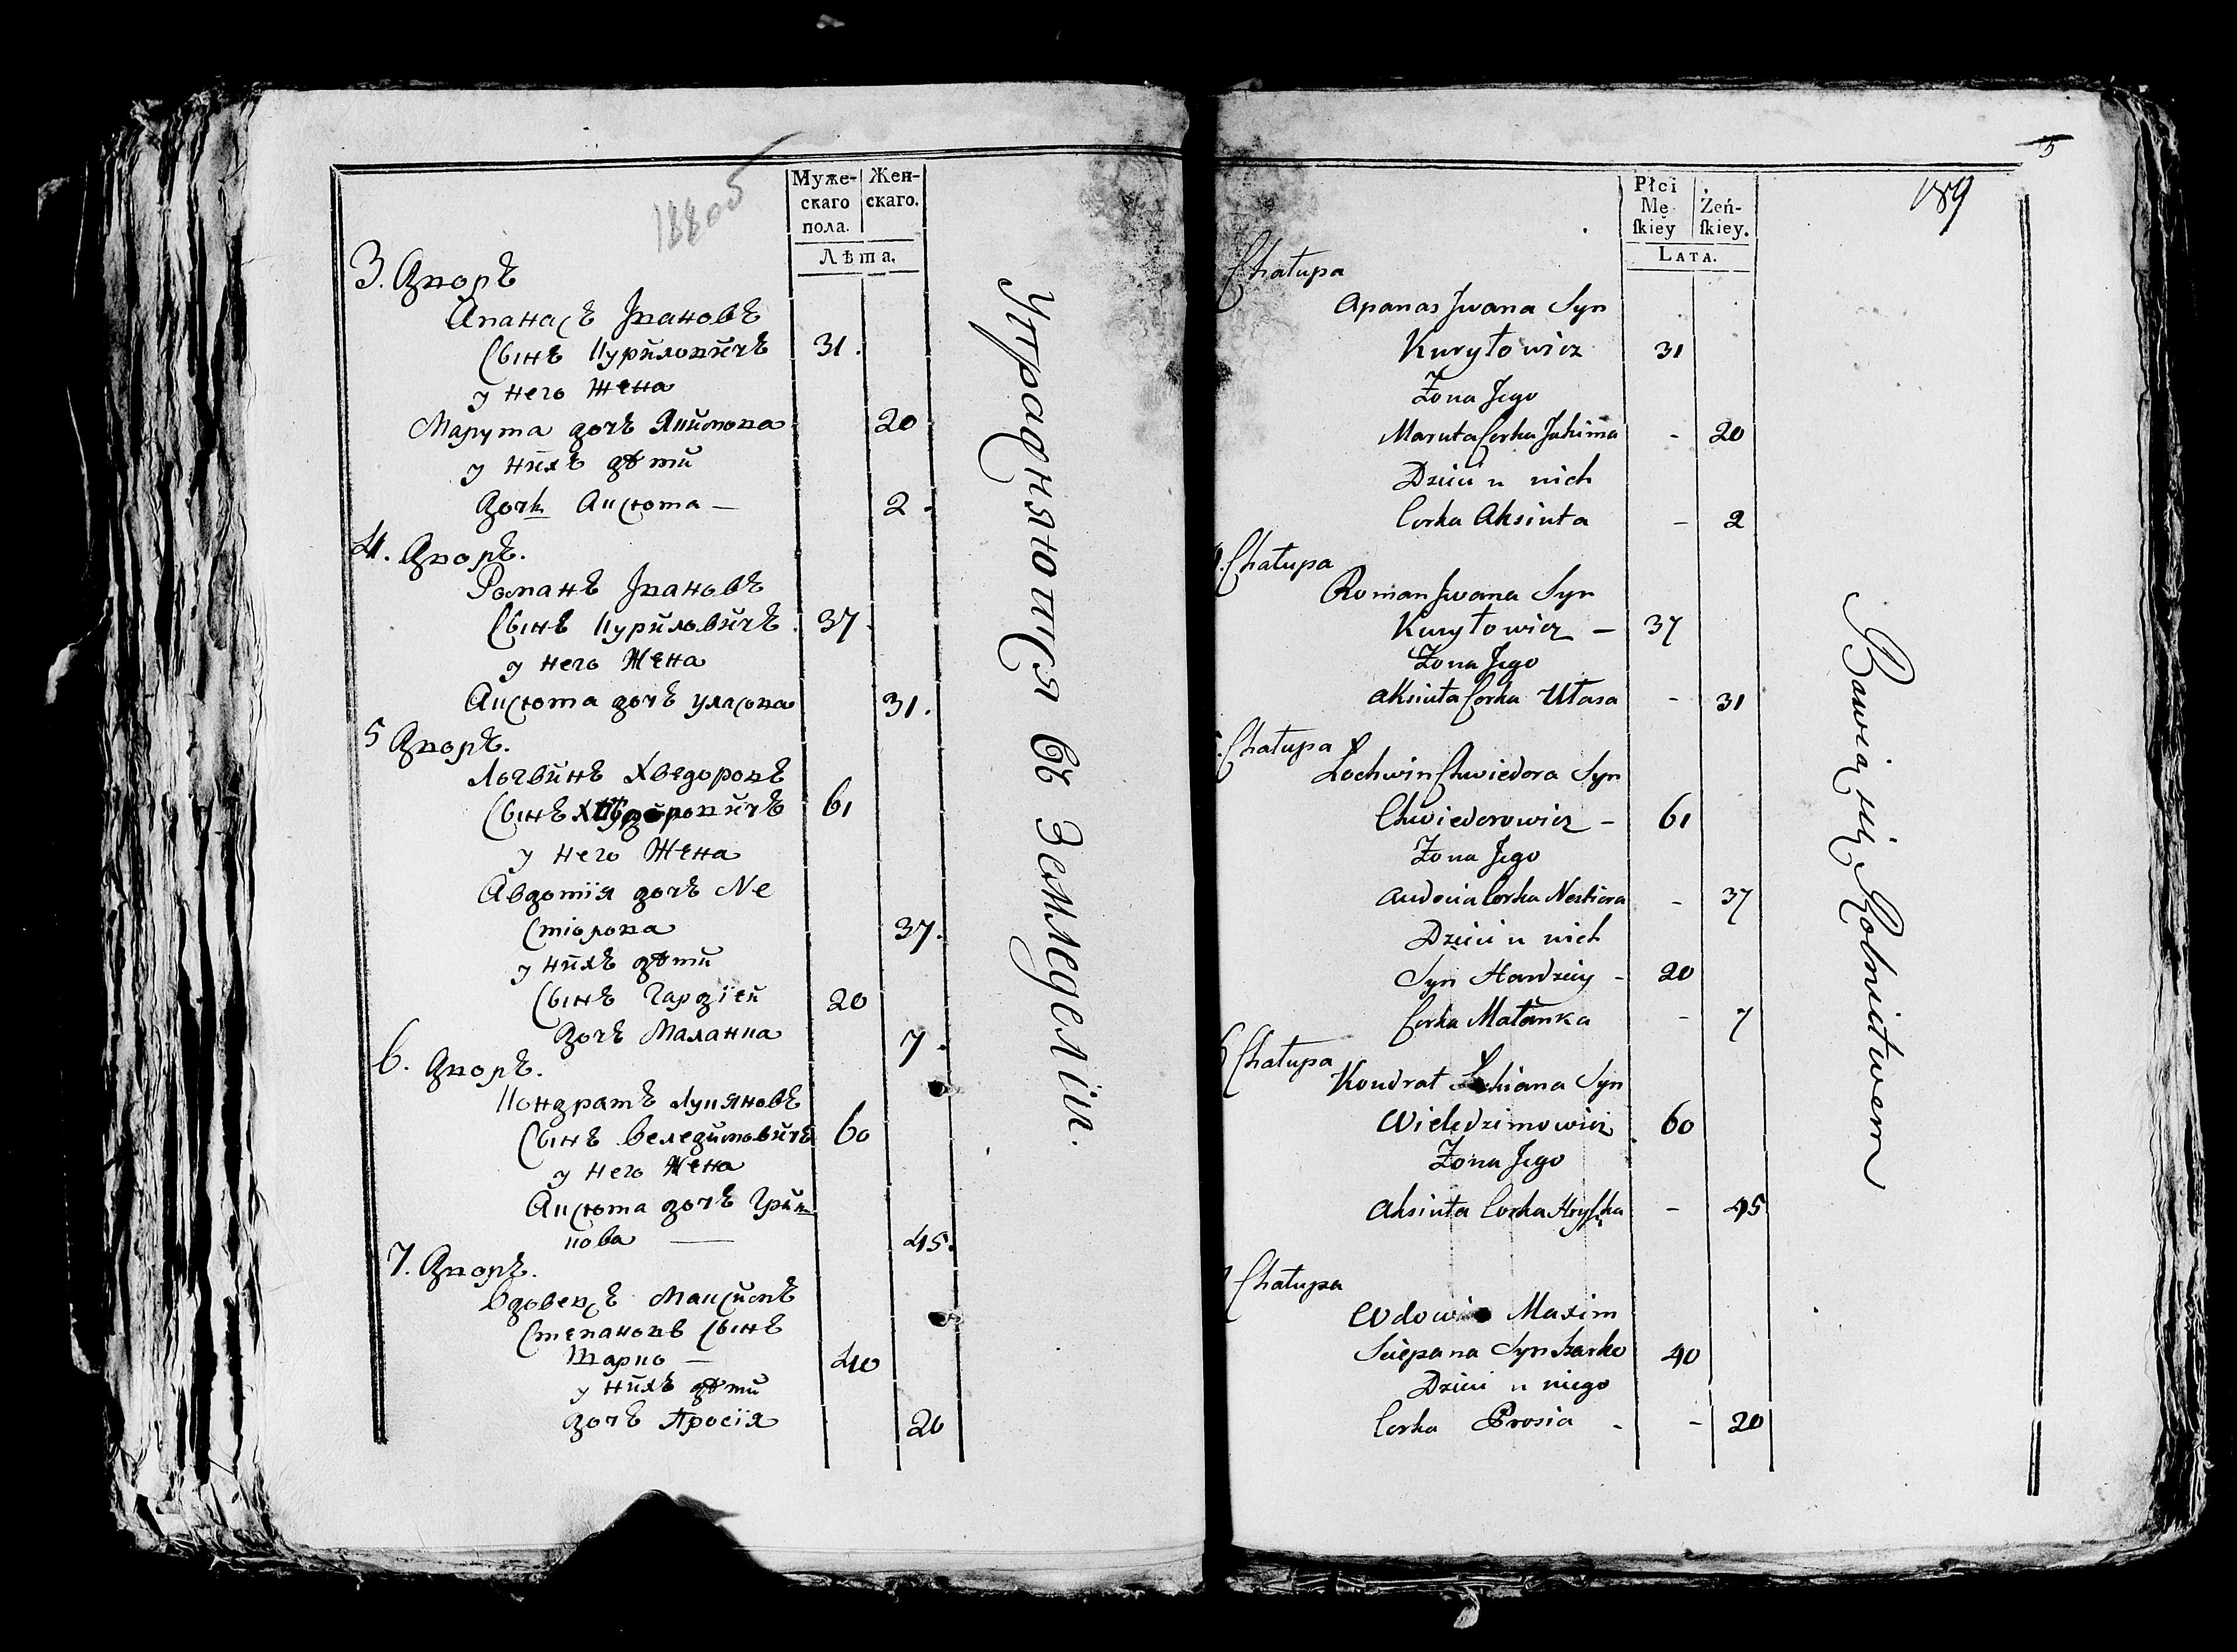 Муже-
скаго
пола.
Жен-
скаго.
Лѣта.
3. Дворъ
Апанасъ Івановъ
Сынъ Курйловйчъ 31.
у него Жена
Марута дочъ Якймова 20
у нйхъ дѣтй
Дочь Аксюта — 2.
4. Дворъ.
Романъ Івановъ
Сынъ Курйловйчъ 37.
у него Жена
Аксюта дочъ Уласова 31.
5 Дворъ.
Логвйнъ Хведоровъ
Сынъ 61
у него Жена
Авдотія дочъ Не
стіорова 37.
у нйхъ дѣтй
Сынъ Гардіей 20
Дочъ Маланка 7.
6. Дворъ.
Кондратъ Лукяновъ
Сынъ Веледймовйчъ 60
у него Жена
Аксюта дочъ Грйш
кова — 45.
7. Дворъ.
Вдовецъ Максймъ
Степановъ Сынъ
Шарко — 40
у нйхъ дѣтй
дочъ Просія 20
Упраðняются въ Земледеліи.
5
189
Płci
Mę
skiey
Żeń-
skiey.
LATA.
Chałupa
Apanas Jwana Syn
Kuryłowicz 31
Żona Jego
Maruta Corka Jakima - 20
Dzieci u nich
Corka Aksiuta - 2
Chałupa
Roman Jwana Syn
Kuryłowicz — 37
Żona Jego
Aksiuta Corka Ułasa - 31
Chałupa
Łochwin Chwiedora Syn
Chwiedorowicz - 61
Żona Jego
Audocia Corka Nestiora - 37
Dzieci u nich
Syn Hardziey - 20
Corka Małanka - 7
6 Chałupa
Kondrat Łukiana Syn
Wieledzimowicz 60
Żona Jego
Aksiuta Corka Hryszka - 45
Chałupa
Wdowiec Maxim
Sciepana Syn Szarko 40
Dzieci u niego
Corka Prosia - - 20
Bawią się Rolnictwem